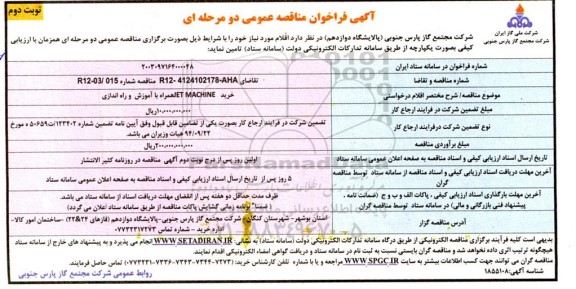 نوبت دوم
آگهی فراخوان مناقصه عمومی دو مرحله ای
شرکت ملی گاز ایران
شرکت مجتمع گاز پارس جنوبی
شرکت مجتمع گاز پارس جنوبی (پالایشگاه دوازدهم) در نظر دارد اقلام مورد نیاز خود را با شرایط ذیل بصورت برگزاری مناقصه عمومی دو مرحله ای همزمان با ارزیابی
کیفی بصورت یکپارچه از طریق سامانه تدارکات الکترونیکی دولت (سامانه ستاد) تامین نماید:
شماره فراخوان در سامانه ستاد ایران
۲۰۰۳۰۹۷۱۶۴۰۰۰۰۲۸
شماره مناقصه و تقاضا
تقاضای R12- 4124102178-AHA مناقصه شماره R12-03/ 015
موضوع مناقصه / شرح مختصر اقلام درخواستی
خرید JET MACHINE همراه با آموزش و راه اندازی
مبلغ تضمین شرکت در فرایند ارجاع کار
۱۰,۰۰۰,۰۰۰,۰۰۰ ریال
نوع تضمین شرکت در فرایند ارجاع کار
تضمین شرکت در فرایند ارجاع کار بصورت یکی از تضامین قابل قبول وفق آیین نامه تضمین شماره ۱۲۳۴۰۲/ت۵۰۶۵۹ه مورخ
۹۴/۰۹/۲۲ هیات وزیران می باشد.
مبلغ برآوردی مناقصه
۲۰۰,۰۰۰,۰۰۰,۰۰۰ ریال
تاریخ ارسال اسناد ارزیابی کیفی و اسناد مناقصه به صفحه اعلان عمومی سامانه ستاد
اولین روز پس از درج نوبت دوم آگهی مناقصه در روزنامه کثیر الانتشار
آخرین مهلت دریافت اسناد ارزیابی کیفی و اسناد مناقصه از سامانه ستاد توسط مناقصه
گران
۵ روز پس از تاریخ ارسال اسناد ارزیابی کیفی و اسناد مناقصه به صفحه اعلان عمومی سامانه ستاد
آخرین مهلت بارگذاری اسناد ارزیابی کیفی ، پاکات الف و ب و ج (ضمانت نامه،
پیشنهاد فنی بازرگانی و مالی) در سامانه ستاد توسط مناقصه گران
ظرف مدت حداقل دو هفته پس از انقضای مهلت دریافت اسناد از سامانه ستاد می باشد.
(ضمنا برنامه زمانی گشایش پاکات مناقصه از طریق سامانه ستاد اعلان می گردد)
آدرس مناقصه گزار
استان بوشهر - شهرستان کنگان - شرکت مجتمع گاز پارس جنوبی-پالایشگاه دوازدهم (فازهای ۲۴&۲۲) ساختمان امور کالا-
اداره خرید - شماره تماس
بدیهی است کلیه فرآیند برگزاری مناقصه الکترونیکی از طریق درگاه سامانه تدارکات الکترونیکی دولت (ستاد) به نشانی WWW.SETADIRAN.IR انجام می پذیرد و به پیشنهاد های خارج از سامانه ستاد
هیچگونه ترتیب اثری داده نخواهد شد و مناقصه گران بایستی نسبت به ثبت نام در سامانه ستاد و دریافت گواهی امضاء الکترونیکی اقدام نمایند.
مناقصه گران می توانند جهت کسب اطلاعات بیشتر به سایت WWW.SPGC.IR مراجعه و یا با شماره تلفن کارشناس خرید: تماس حاصل فرمایند.
شناسه آگهی: ۱۸۵۵۱۰۸
روابط عمومی شرکت مجتمع گاز پارس جنوبی